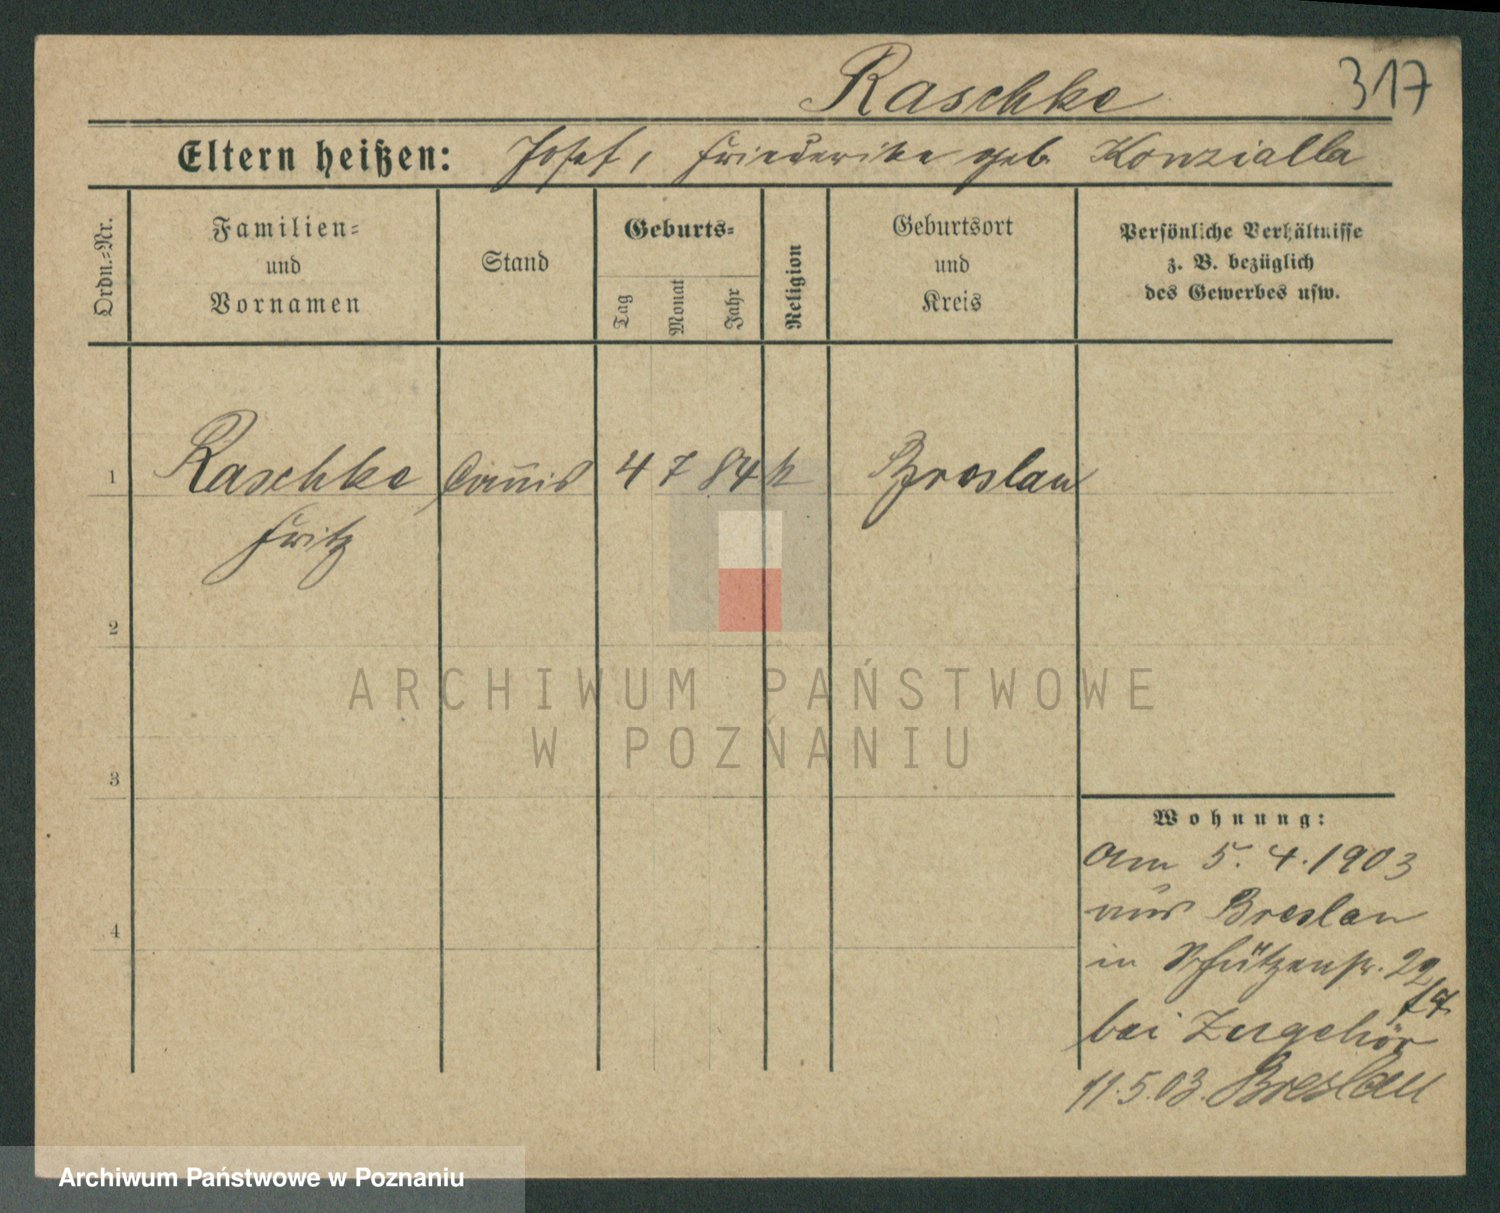 Raschke
317
Eltern heißen: Josef, Friederike geb. Konzialla
Ordn.-Nr.
Familien-
und
Vornamen
Stand
Geburts-
Tag
Monat
Jahr
Religion
Geburtsort
und
Kreis
Persönliche Verhältnisse
z. B. bezüglich
des Gewerbes usw.
1 Raschke Com̄is 4 7 84 k Breslau
Fritz
2
3
4
Wohnung:
Am 5. 4. 1903
aus Breslau
in Schützenstr. 22
bei Zugehör
11.5.03. Breslau
ARCHIWUM PAŃSTWOWE
W POZNANIU
Archiwum Państwowe w Poznaniu